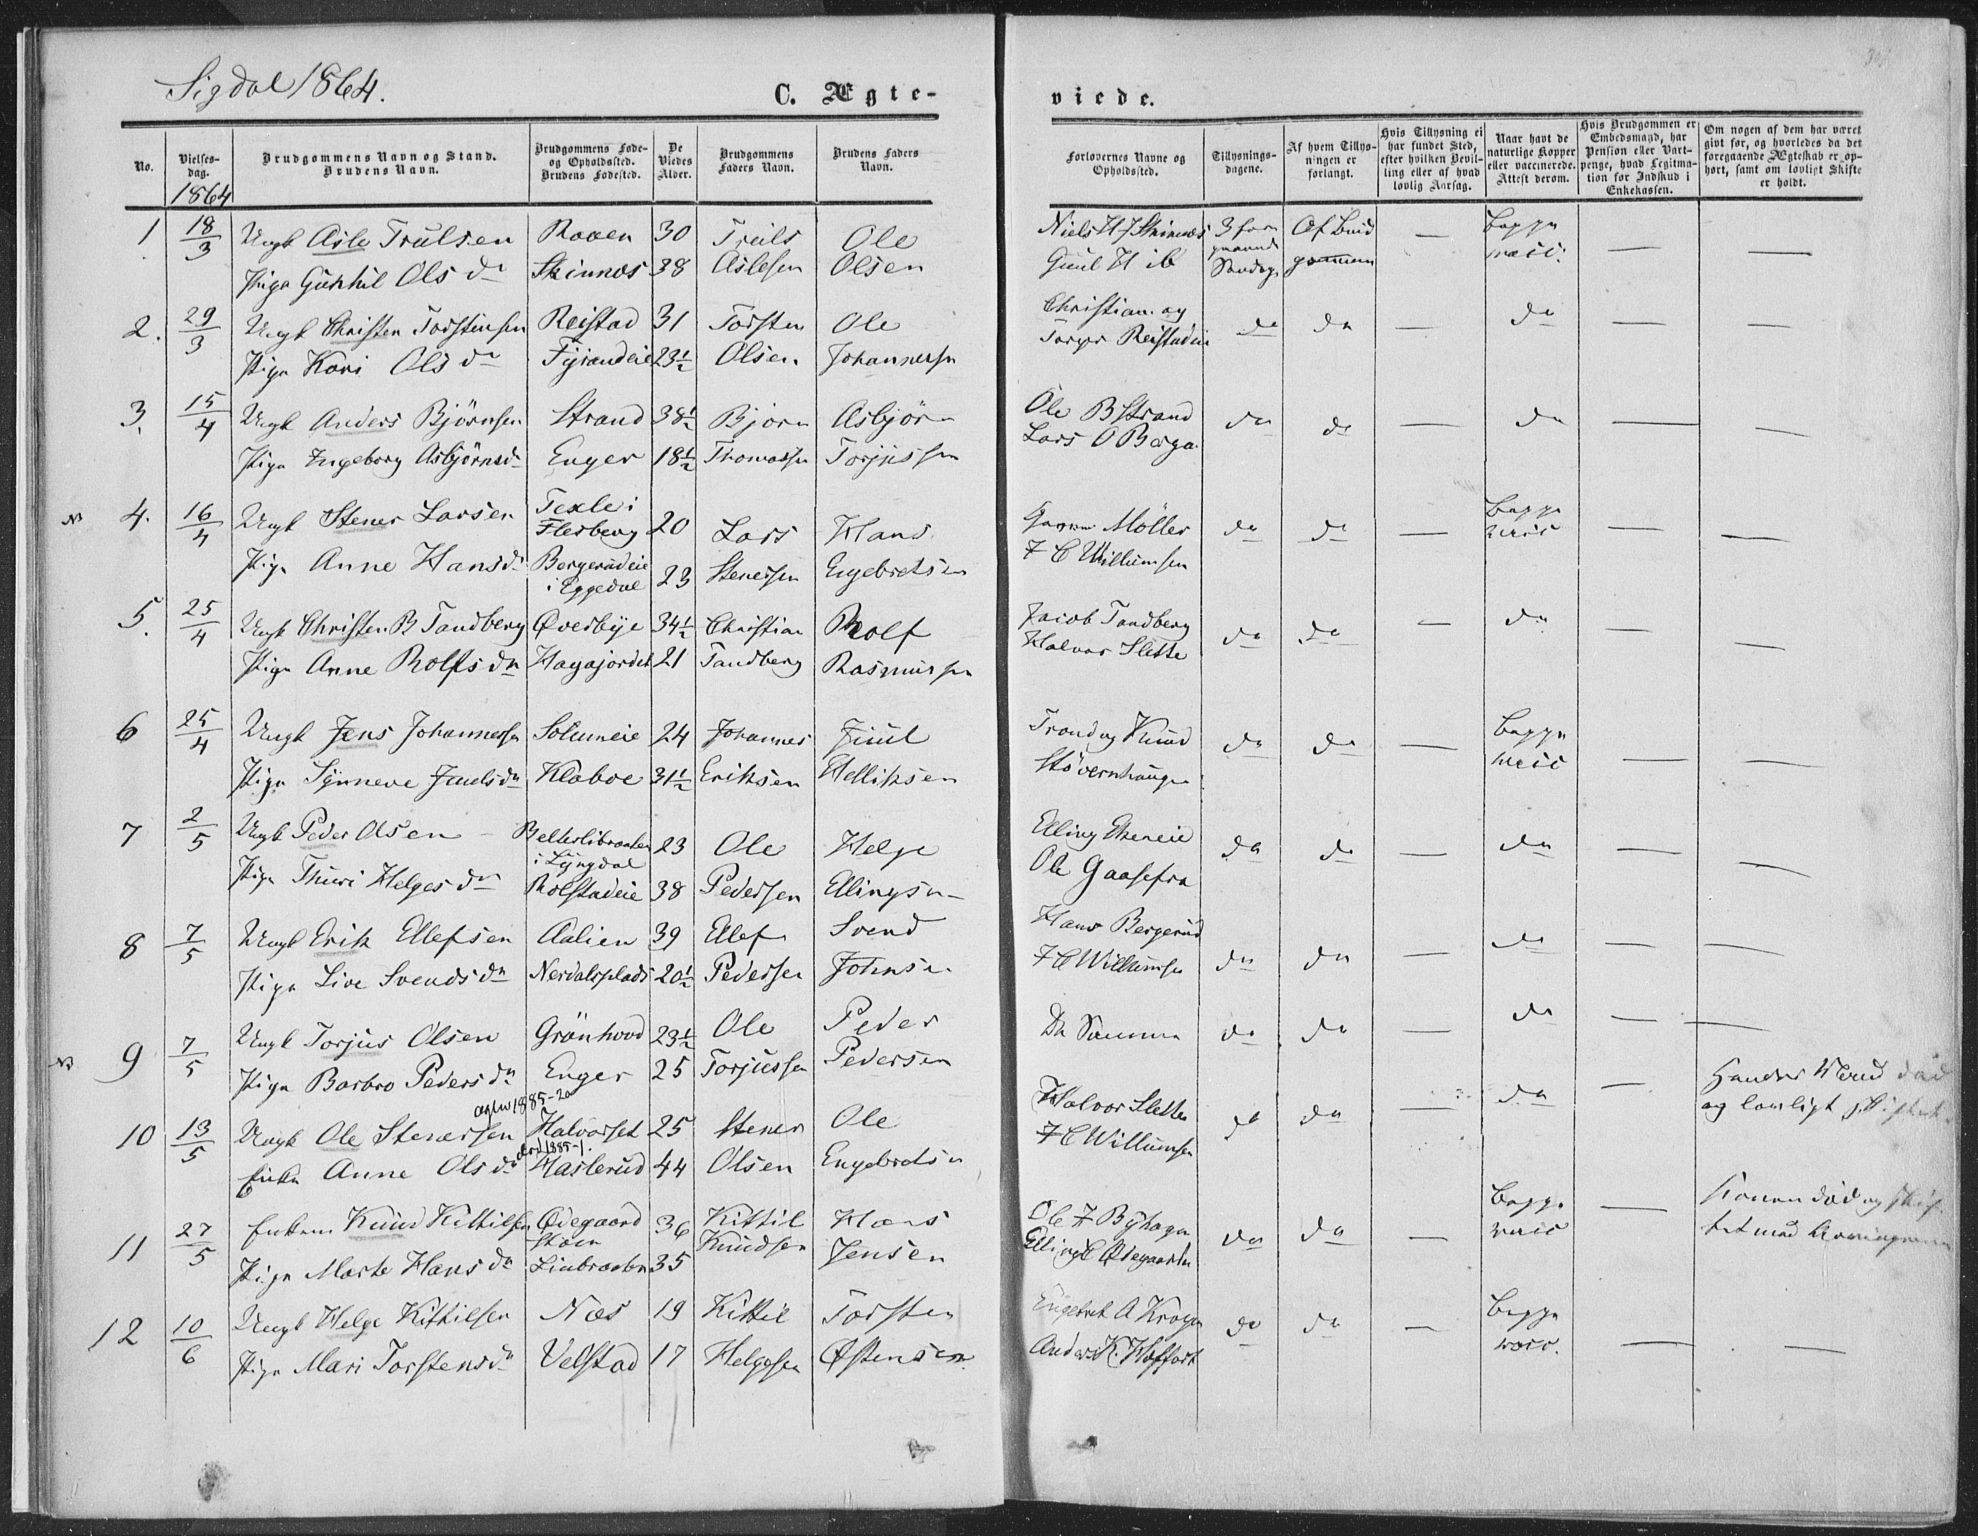 Sigdal 1864.
C. Ægte-
viede.
No.
Vielses-
dag.
1864
Brudgommens Navn og Stand.
Brudens Navn.
Brudgommens Føde-
og Opholdssted.
Brudens Fødested.
De
Viedes
Alder.
Brudgommens
Faders Navn.
Brudens Faders
Navn.
Forlovernes Navne og
Opholdssted.
Tillysnings-
dagene.
Af hvem Tillys-
ningen er
forlangt.
Hvis Tillysning ei
har fundet Sted,
efter hvilken Bevil-
ling eller af hvad
lovlig Aarsag.
Naar havt de
naturlige Kopper
eller vaccinerede.
Attest derom.
Hvis Brudgommen er
Embedsmand, har
Pension eller Vart-
penge, hvad Legitima-
tion for Indskud i
Enkekassen.
Om nogen af dem har været
givt før, og hvorledes da det
foregaaende Ægteskab er op-
hørt, samt om lovligt Skifte
er holdt.
1 18/3 Ungk Asle Trulsen Roaen 30 Truls Ole Niels H J Skinnes 3 Af Brud — Begge — —
Pige Gunhil Olsdr Skinnes 38 Aslesen Olsen Guul H ib Søndage gommen vacc.
2. 29/3 Ungk Christen Torstensen Reistad 31 Torsten Ole Christian og do do — do — —
Pige Kari Olsdr 23½ Olsen Johannesen Torger Reistadeie
3. 15/4 Ungk Anders Bjørnsen Strand 38½ Bjørn Asbjørn Ole B Strand do do do — —
Pige Ingeborg Asbjørnsd Enger 18½ Thomassen Torjussen Lars O Berga
N 4. 16/4 Ungk Stener Larsen Texle i
Flesberg 20 Lars Hans Møller do do — Begge — —
Pige Anne Hansdr Bergerudeie
i Eggedal 23 Stenersen Engebretsen F C Willumsen vacc
5. 25/4 Ungk Christen B Tandberg Øverbye 34½ Christian Rolf Jacob Tandberg do do — do — —
Pige Anne Rolfsdr Hagajordet 21 Tandberg Rasmussen Halvor Slette
6 25/4 Ungk Jens Johannessen Solumeie 24 Johannes Juul Trond og Knud do do — Begge — —
Pige Synneve Juulsdr Kloboe 31½ Eriksen Helliksen Støvernhaugen vacc
7 2/5 Ungk Peder Olsen – Belteslibraaten
i Lyngdal 23 Ole Helge Elling do do — do — —
Pige Thuri Helgesdr Rolfstadeie 38 Pedersen Ellingsen Ole Gaasefra
8 7/5 Ungk Erik Ellefsen Aalien 39 Ellef Svend Hans Bergerud do do — do — —
Pige Live Svendsdr Nerdalsplads 20½ Pedersen Johnsen F C Willumsen
N 9 7/5 Ungk Torjus Olsen Grønhovd 23½ Ole Peder De Samme do do — do — —
Pige Barbro Pedersdr Enger 25 Torjussen Pedersen
1885-20
10 13/5 Ungk Ole Stenersen Halvorset 25 Stener Ole Halvor Slette do do — do — Hendes Mand død
1885-1.
Enke Anne Olsdr Haslerud 44 Olsen Engebretsen F C Willumsen og lovligt skiftet
11 27/5 Enkem Knud Kittilsen Ødegaard
Støen 36 Kittil Hans Ole F Byhagen do do — Begge — Konen død og skif-
Pige Marte Hansdr Liabraaten 35 Knudsen Jensen Elling Ødegaarden vacc tet med Arvingerne
12 10/6 Ungk Helge Kittilsen Næs 19 Kittil Torsten Engebret A Kragen do do — Begge — —
Pige Mari Torstensdr Velstad 17 Helgesen Østensen Anders K. Hoffart vacc.